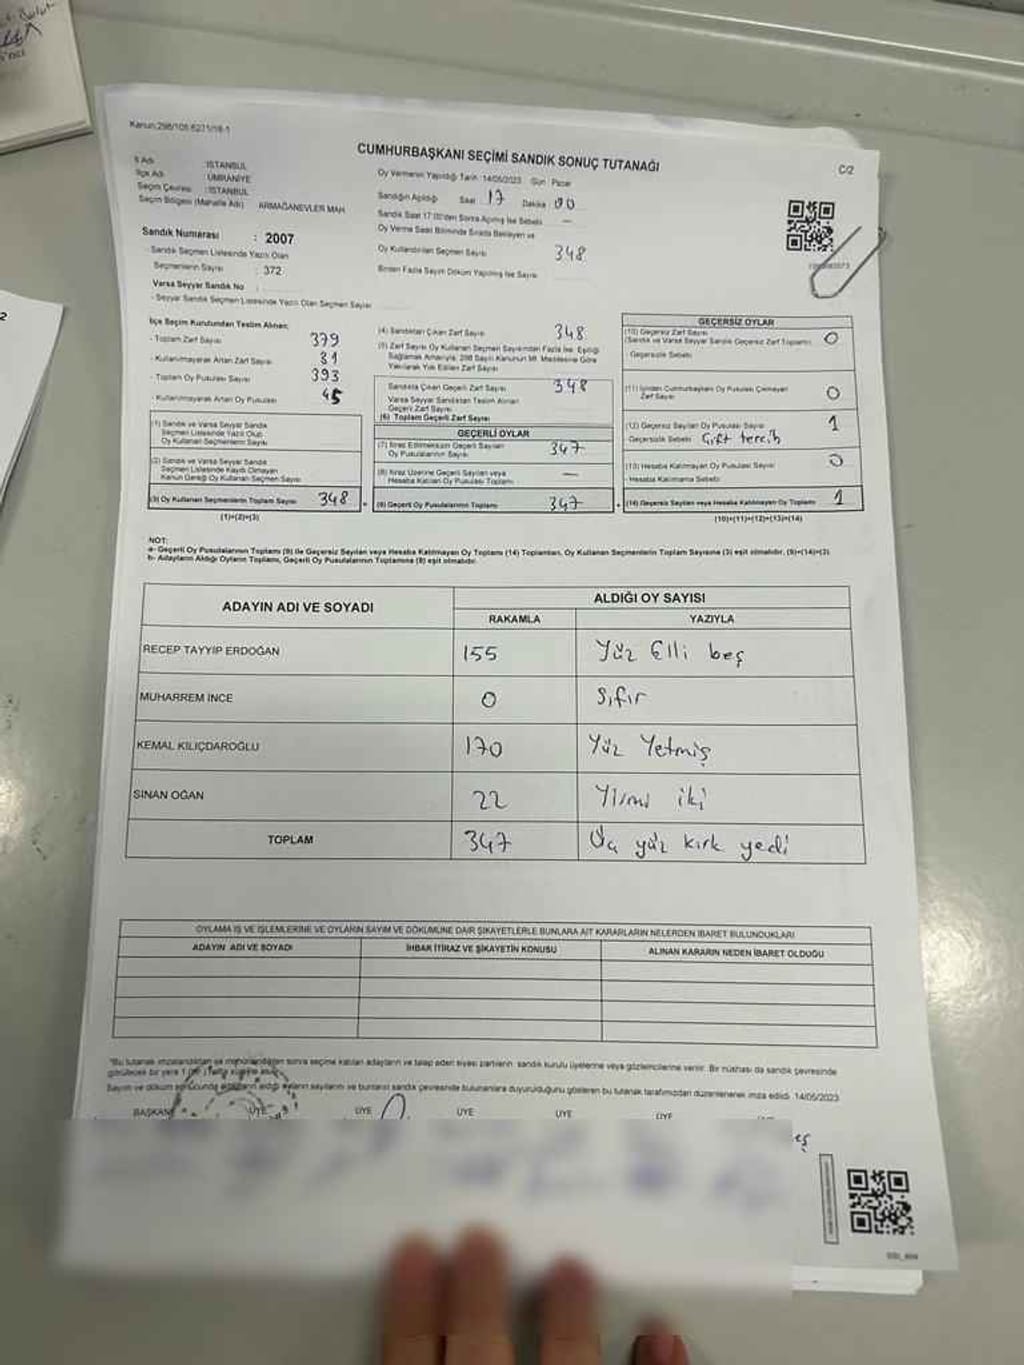 Kanun:298/105 6271/18-1
CUMHURBAŞKANI SEÇİMİ SANDIK SONUÇ TUTANAĞI
C/2
İl Adı : İSTANBUL
İlçe Adı : ÜMRANİYE
Seçim Çevresi : İSTANBUL
Seçim Bölgesi (Mahalle Adı) ARMAĞANEVLER MAH.
Sandık Numarası : 2007
- Sandık Seçmen Listesinde Yazılı Olan
Seçmenlerin Sayısı : 372
Varsa Seyyar Sandık No :
- Seyyar Sandık Seçmen Listesinde Yazılı Olan Seçmen Sayısı
Oy Vermenin Yapıldığı Tarih :14/05/2023 Gün : Pazar
Sandığın Açıldığı Saat 17 Dakika 00
Sandık Saat 17:00'den Sonra Açılmış İse Sebebi —
Oy Verme Saati Bitiminde Sırada Bekleyen ve
Oy Kullandırılan Seçmen Sayısı 348
Birden Fazla Sayım Döküm Yapılmış İse Sayısı
İlçe Seçim Kurulundan Teslim Alınan;
- Toplam Zarf Sayısı 379
- Kullanılmayarak Artan Zarf Sayısı 31
- Toplam Oy Pusulası Sayısı 393
- Kullanılmayarak Artan Oy Pusulası 45
(1) Sandık ve Varsa Seyyar Sandık
Seçmen Listesinde Yazılı Olup
Oy Kullanan Seçmenlerin Sayısı
(2) Sandık ve Varsa Seyyar Sandık
Seçmen Listesinde Kayıtlı Olmayan
Kanun Gereği Oy Kullanan Seçmen Sayısı
(3) Oy Kullanan Seçmenlerin Toplam Sayısı 348
(1)+(2)=(3)
(4) Sandıktan Çıkan Zarf Sayısı 348
(5) Zarf Sayısı Oy Kullanan Seçmen Sayısından Fazla İse, Eşitliği
Sağlamak Amacıyla, 298 Sayılı Kanunun 98. Maddesine Göre
Yakılarak Yok Edilen Zarf Sayısı
Sandıkta Çıkan Geçerli Zarf Sayısı 348
Varsa Seyyar Sandıktan Teslim Alınan
Geçerli Zarf Sayısı
(6) Toplam Geçerli Zarf Sayısı
GEÇERLİ OYLAR
(7) İtiraz Edilmeksizin Geçerli Sayılan
Oy Pusulalarının Sayısı 347
(8) İtiraz Üzerine Geçerli Sayılan veya
Hesaba Katılan Oy Pusulası Toplamı —
(9) Geçerli Oy Pusulalarının Toplamı 347
GEÇERSİZ OYLAR
(10) Geçersiz Zarf Sayısı 0
(Sandık ve Varsa Seyyar Sandık Geçersiz Zarf Toplamı)
Geçersizlik Sebebi
(11) İçinden Cumhurbaşkanı Oy Pusulası Çıkmayan
Zarf Sayısı 0
(12) Geçersiz Sayılan Oy Pusulası Sayısı 1
Geçersizlik Sebebi Çift tercih
(13) Hesaba Katılmayan Oy Pusulası Sayısı 0
- Hesaba Katılmama Sebebi
(14) Geçersiz Sayılan veya Hesaba Katılmayan Oy Toplamı 1
(10)+(11)+(12)+(13)=(14)
NOT:
a- Geçerli Oy Pusulalarının Toplamı (9) ile Geçersiz Sayılan veya Hesaba Katılmayan Oy Toplamı (14) Toplamları, Oy Kullanan Seçmenlerin Toplam Sayısına (3) eşit olmalıdır. (9)+(14)=(3)
b- Adayların Aldığı Oyların Toplamı, Geçerli Oy Pusulalarının Toplamına (9) eşit olmalıdır.
ADAYIN ADI VE SOYADI ALDIĞI OY SAYISI
RAKAMLA YAZIYLA
RECEP TAYYİP ERDOĞAN 155 Yüz Elli beş
MUHARREM İNCE 0 Sıfır
KEMAL KILIÇDAROĞLU 170 Yüz Yetmiş
SİNAN OĞAN 22 Yirmi iki
TOPLAM 347 Üç yüz kırk yedi
OYLAMA İŞ VE İŞLEMLERİNE VE OYLARIN SAYIM VE DÖKÜMÜNE DAİR ŞİKAYETLERLE BUNLARA AİT KARARLARIN NELERDEN İBARET BULUNDUKLARI
ADAYIN ADI VE SOYADI İHBAR İTİRAZ VE ŞİKAYETİN KONUSU ALINAN KARARIN NEDEN İBARET OLDUĞU
*Bu tutanak imzalandıktan ve mühürlendikten sonra seçime katılan adayların ve talep eden siyasi partilerin sandık kurulu üyelerine veya gözlemcilerine verilir. Bir nüshası da sandık çevresinde
görülecek bir yere 1 hafta süreyle asılır.
Sayım ve döküm sonucunda adayların aldığı oyların sayılarını ve bunların sandık çevresinde bulunanlara duyurulduğunu gösteren bu tutanak tarafımızdan düzenlenerek imza edildi. 14/05/2023
BAŞKAN ÜYE ÜYE ÜYE ÜYE ÜYE